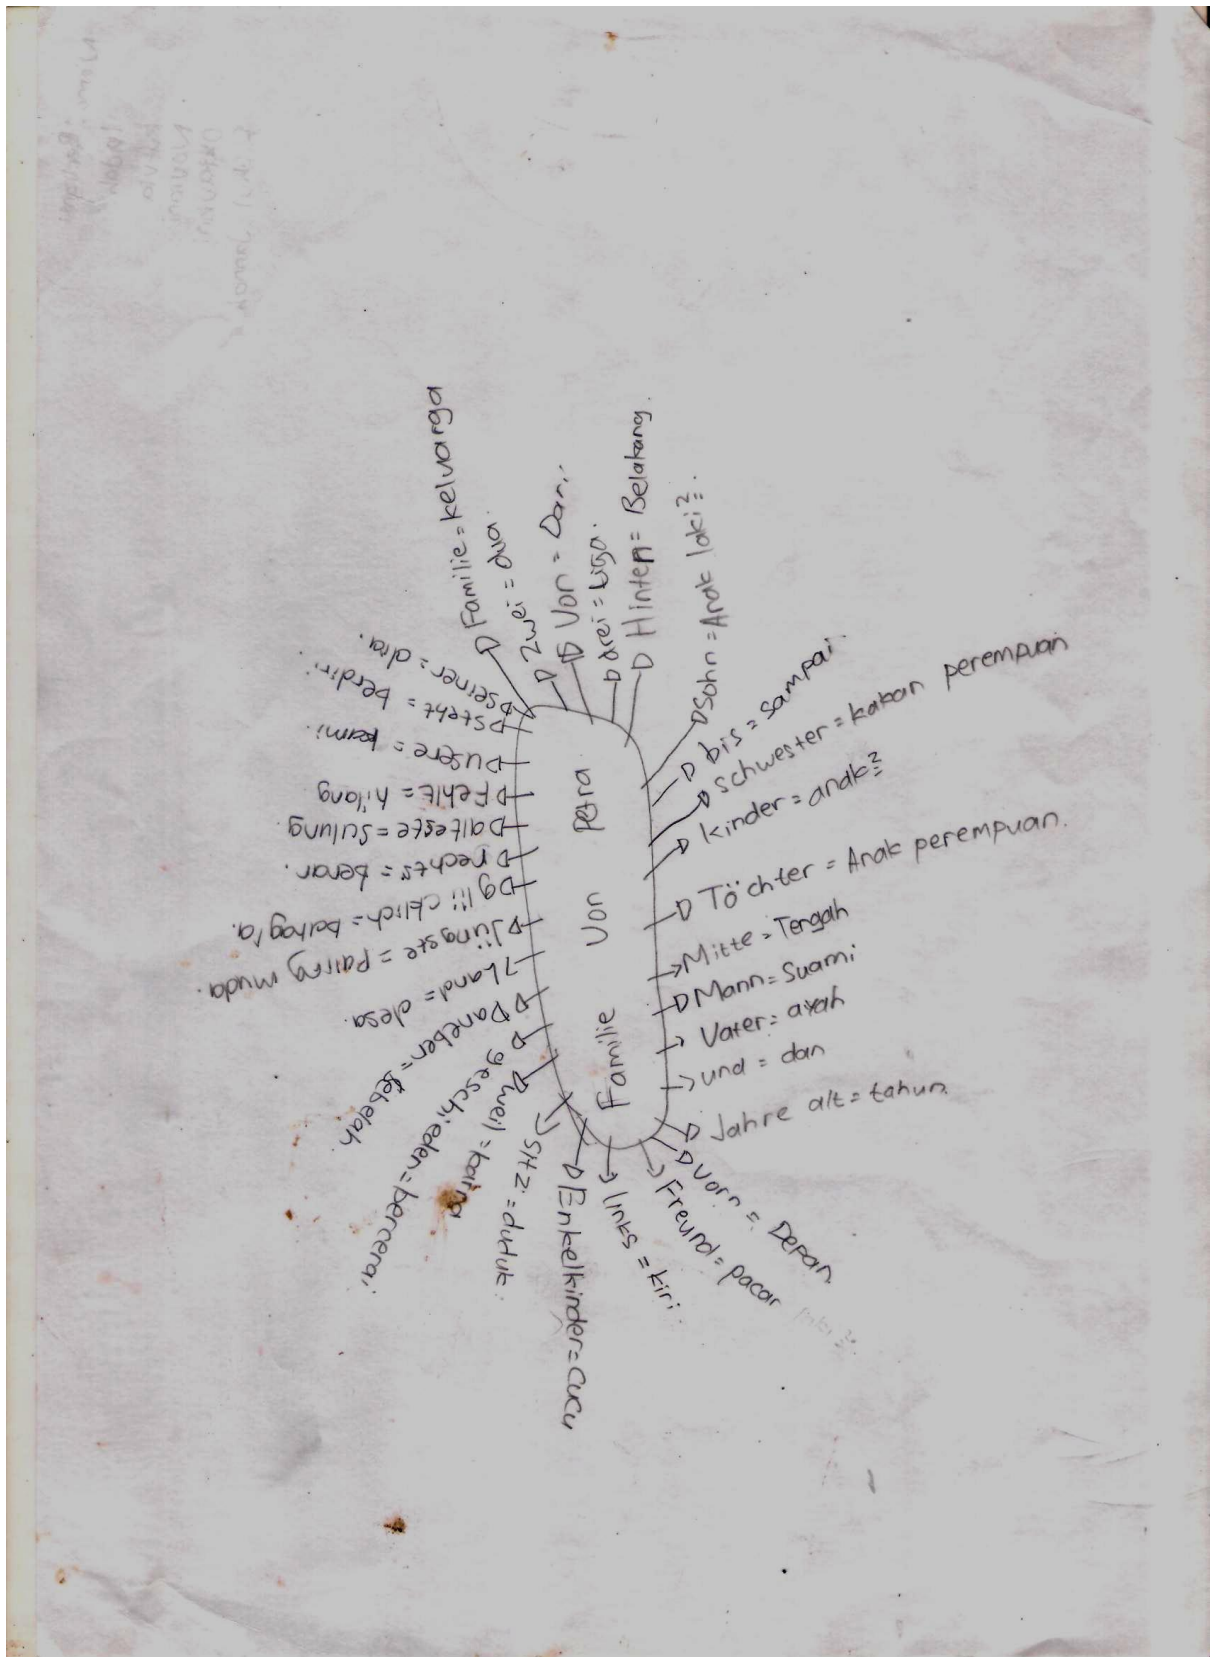 Familie Von Petra
Familie = keluarga
Zwei = dua.
Von = Dari,
drei = tiga.
Hinten = Belakang.
Sohn = Anak laki².
bis = sampai.
Schwester = kakan perempuan
kinder = anak²
Töchter = Anak perempuan.
Mitte = Tengah
Mann = Suami
Vater = ayah
und = dan
Jahre alt = tahun
Vorn = Depan
Freund = pacar
links = kiri.
Enkelkinder = Cucu
Sitz = duduk.
geschieden = bercerai
Daneben = sebelah.
Land = desa.
Jüngste = paling muda.
rechts = benar.
älteste = Sulung.
Fehlt = hilang
usere = kami.
steht = berdiri.
seiner = dia.